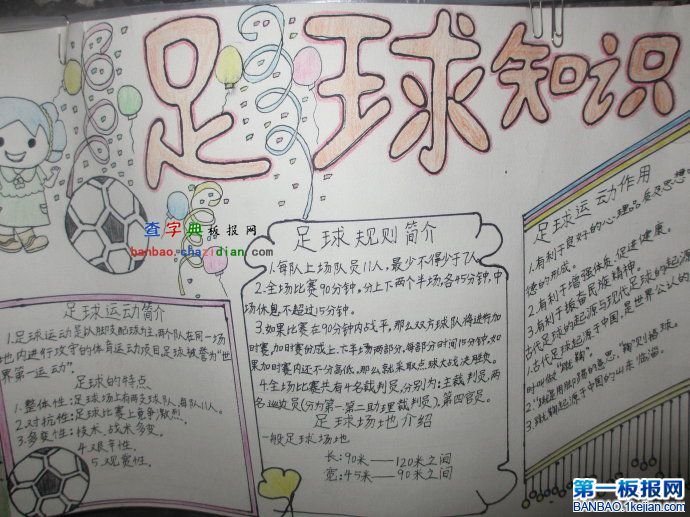 足球知识
查字典板报网
banbao.chazidian.com
足球运动简介
1.足球运动是以脚支配球为主,两个队在同一场
地内进行攻守的体育运动项目,足球被誉为"世
界第一运动"。
足球的特点
1.整体性:足球场上有两支球队,每队11人。
2.对抗性:足球比赛上竞争激烈。
3.多变性:技术、战术多变。
4.艰辛性。
5.观赏性。
足球规则简介
1.每队上场队员11人,最少不得少于7人。
2.全场比赛90分钟,分上下两个半场,各45分钟,中
场休息,不超过15分钟。
3.如果比赛在90分钟内战平,那么双方球队将进行加
时赛,加时赛分成上、下半场两部分,每部分时间15分钟,如
果加时赛内还不分高低,那么就采取点球大战决胜负。
4.全场比赛共有4名裁判员,分别为:主裁判员,两
名巡边员(分为第一第二助理裁判员),第四官员。
足球场地介绍
一般足球场地
长:90米——120米之间
宽:45米——90米之间
足球运动作用
1.有利于良好的心理品质及思想
德的形成。
2.有利于增强体质,促进健康。
3.有利于振奋民族精神。
古代足球的起源与现代足球的起源
1.古代足球起源于中国,是世界公认的
时叫做"蹴鞠"
2."蹴是用脚踢的意思,"鞠"则指球。
3.蹴鞠起源于中国的山东临淄。
第一板报网
BANBAO.1kejian.com